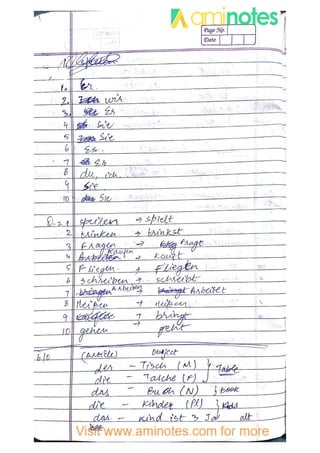 aminotes
Page No.
Date
1. Er
2. wir
3. Es
4 Sie
5 Sie
6 Es.
7 Es
8 du, ich
9 Sie.
10 Sie
Q-2. 1 speilen → spielt
2 trinken → trinkst
3 Fragen → Fragt
4 Kaufen → Kauft
5 Fliegen → Fliegen
6 schreiben → schreibt
7 Arbeiten → Arbeitet
8 Heißen → Heißen
9 → bringt
10 gehen → geht
(Article) Object
der - Tisch (M)
die - Tasche (F) Table
das - Buch (N) book
die - Kinder (Pl) Kids
das - Kind ist 3 Jar alt
Visit www.aminotes.com for more